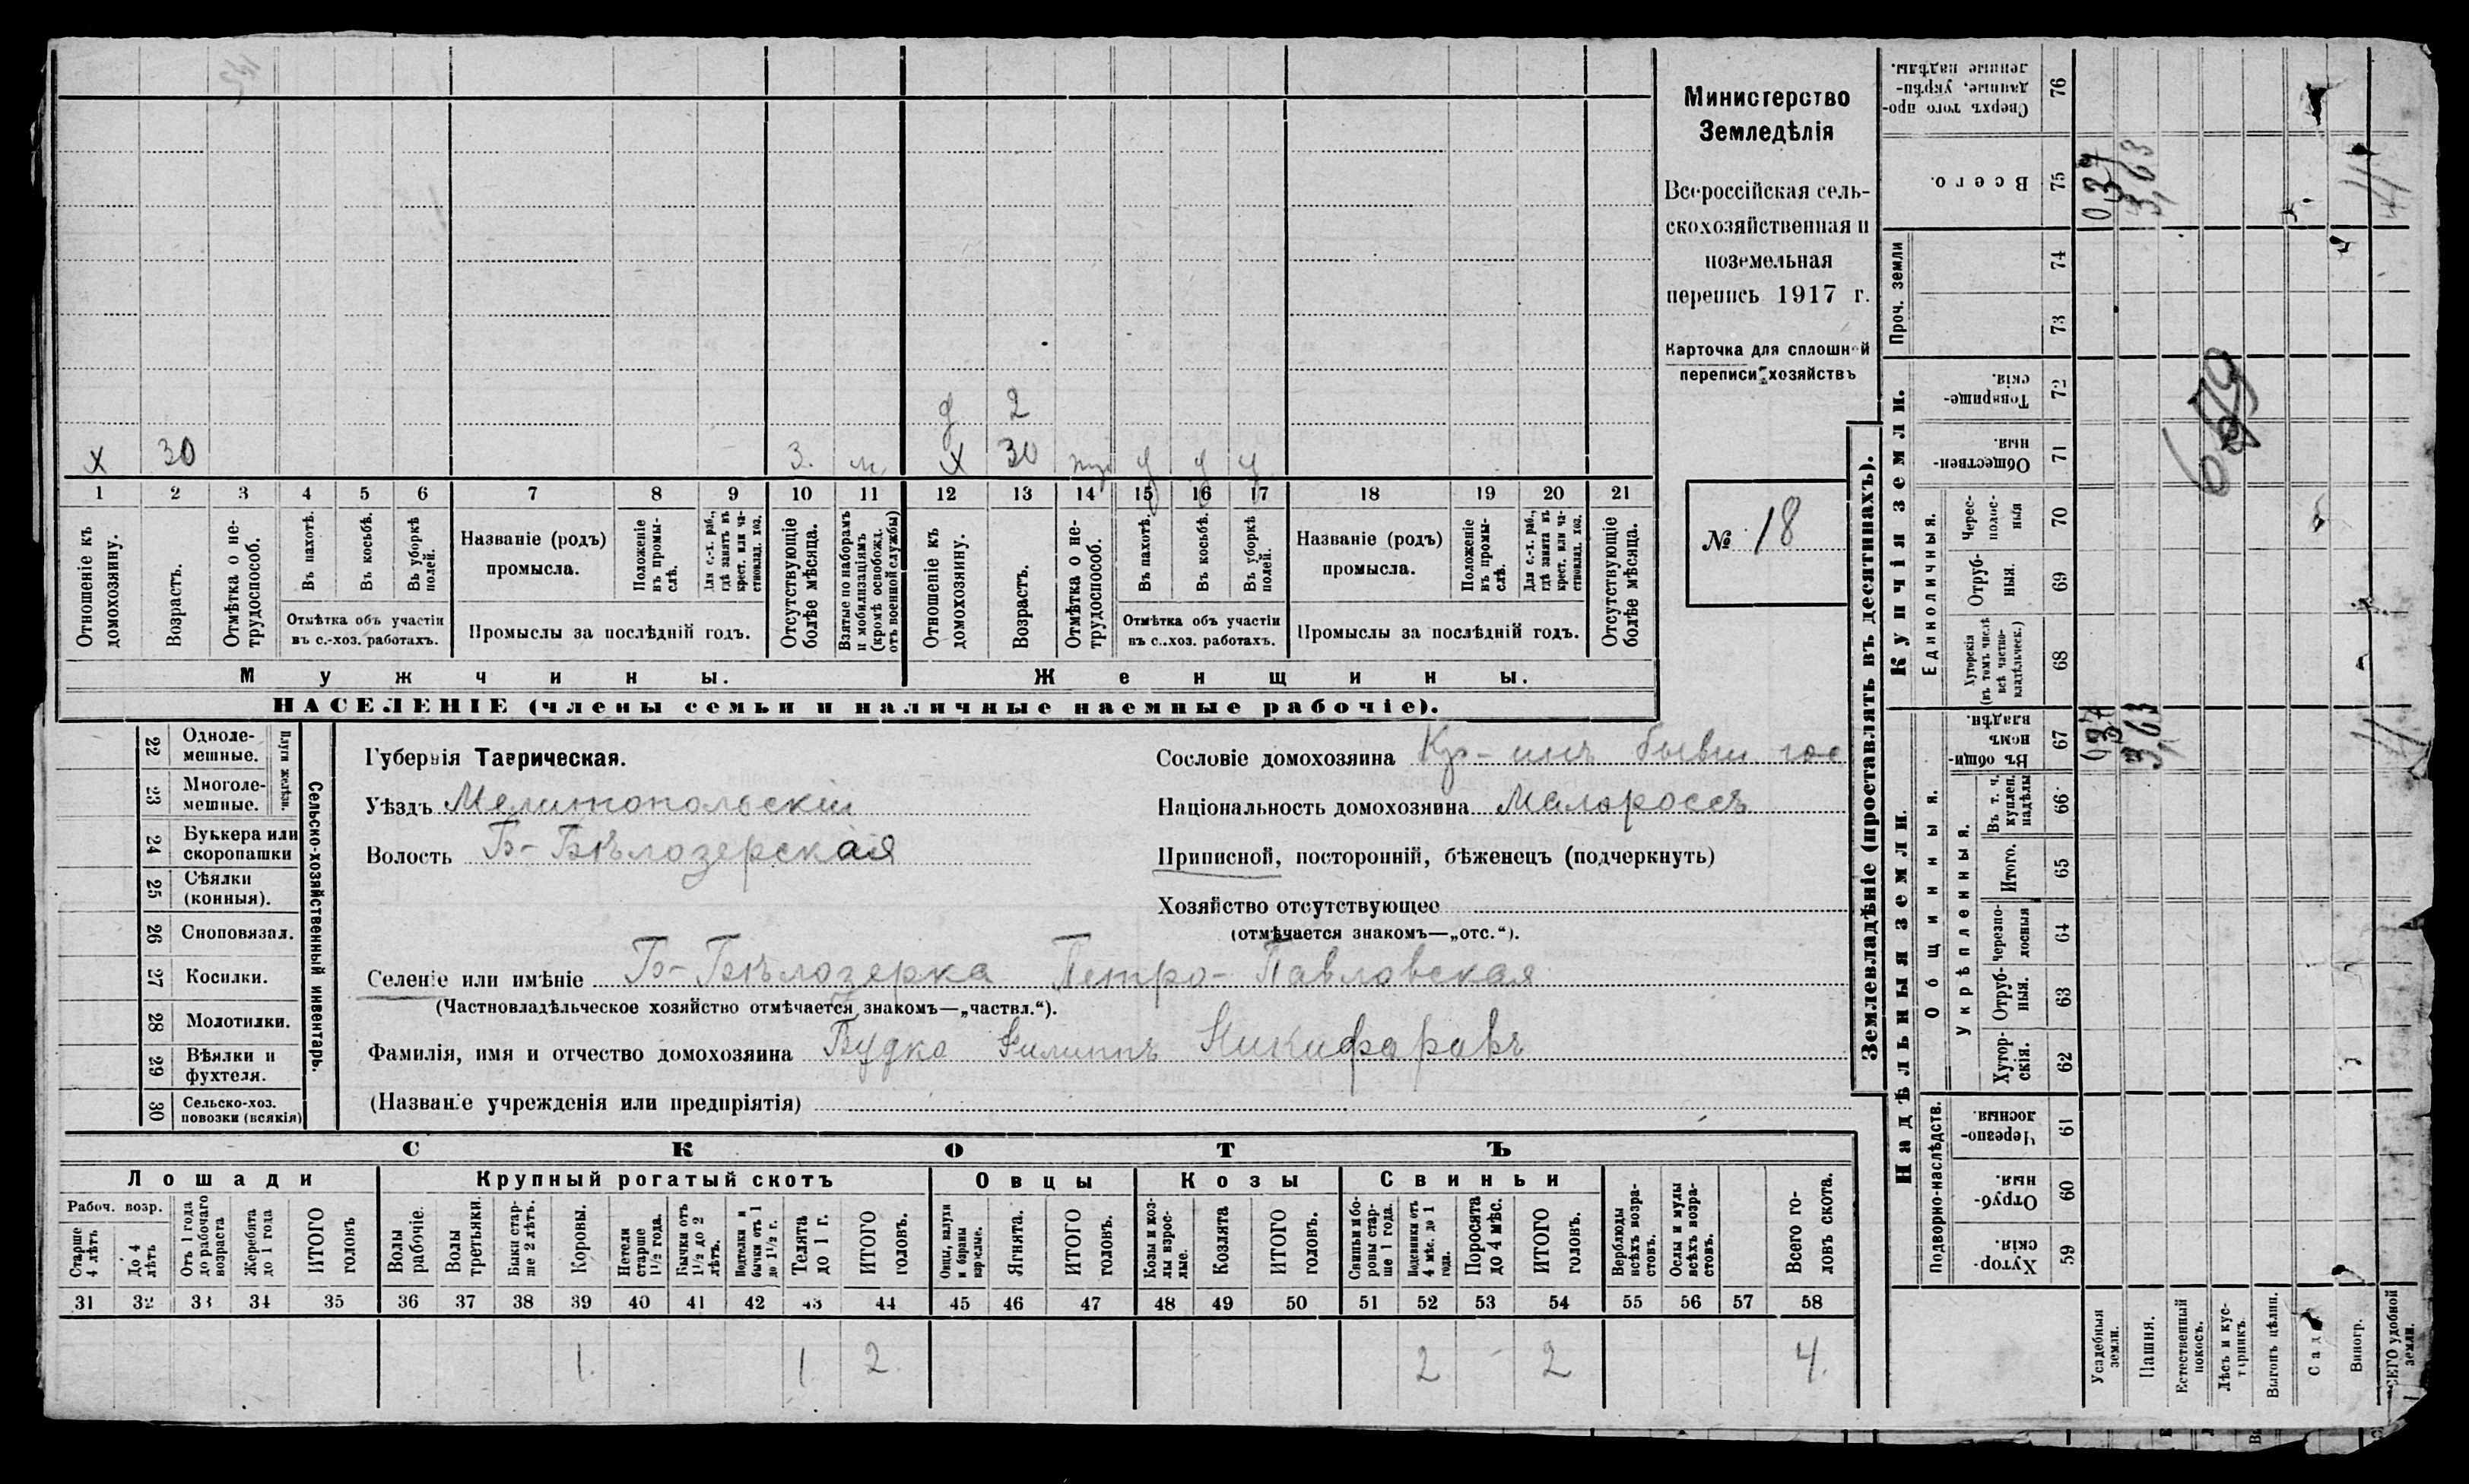 д 2
х 30 3. м. х 30 у у у
1 2 3 4 5 6 7 8 9 10 11 12 13 14 15 16 17 18 19 20 21
Отношеніе къ домохозяину.
Возрастъ.
Отмѣтка о не-трудоспособ.
Въ пахотѣ.
Въ косьбѣ.
Въ уборкѣ полей.
Отмѣтка объ участіи
въ с.-хоз. работахъ.
Названіе (родъ)
промысла.
Положеніе въ промы-слѣ.
Для с.-х. раб., гдѣ занятъ въ крест. или ча-стновлад. хоз.
Промыслы за послѣдній годъ.
Отсутствующіе болѣе мѣсяца.
Взятые по наборамъ и мобилизаціямъ (кромѣ освобожд. отъ военной службы)
Отношеніе къ домохозяину.
Возрастъ.
Отмѣтка о не-трудоспособ.
Въ пахотѣ.
Въ косьбѣ.
Въ уборкѣ полей.
Отмѣтка объ участіи
въ с..хоз. работахъ.
Названіе (родъ)
промысла.
Положеніе въ промы-слѣ.
Для с.-х. раб., гдѣ занята въ крест. или ча-стновлад. хоз.
Промыслы за послѣдній годъ.
Отсутствующіе болѣе мѣсяца.
Мужчины. Женщины.
НАСЕЛЕНІЕ (члены семьи и наличные наемные рабочіе).
Министерство
Земледѣлія
Всероссійская сель-
скохозяйственная и
поземельная
перепись 1917 г.
Карточка для сплошной
переписи хозяйствъ
№ 18
22 Одноле-
мешные.
23 Многоле-
мешные.
Плуги желѣзн.
24 Буккера или
скоропашки
25 Сѣялки
(конныя).
26 Сноповязал.
27 Косилки.
28 Молотилки.
29 Вѣялки и
фухтеля.
30 Сельско-хоз.
повозки (всякія)
Сельско-хозяйственный инвентарь.
Губернія Таврическая.
Уѣздъ Мелитопольскій
Волость Б-Бѣлозерская
Сословіе домохозяина Кр-инъ бывш гос
Національность домохозяина Малороссъ
Приписной, посторонній, бѣженецъ (подчеркнуть)
Хозяйство отсутствующее
(отмѣчается знакомъ—„отс.“).
Селеніе или имѣніе Б-Бѣлозерка Петро-Павловская
(Частновладѣльческое хозяйство отмѣчается знакомъ—„частвл.“).
Фамилія, имя и отчество домохозяина Будко Филиппъ Никифаровъ
(Названіе учрежденія или предпріятія)
СКОТЪ
Лошади Крупный рогатый скотъ Овцы Козы Свиньи
Рабоч. возр.
Старше 4 лѣтъ
До 4 лѣтъ
Отъ 1 года до рабочаго возраста
Жеребята до 1 года
ИТОГО головъ
Волы рабочіе.
Волы третьяки.
Быки стар-ше 2 лѣтъ.
Коровы.
Нетели старше 1½ года.
Бычки отъ 1½ до 2 лѣтъ.
Подтелки и бычки отъ 1 до 1½ г.
Телята до 1 г.
ИТОГО головъ.
Овцы, валухи и бараны взрослые.
Ягнята.
ИТОГО головъ.
Козы и коз-лы взрос-лые.
Козлята
ИТОГО головъ.
Свиньи и бо-ровы стар-ше 1 года.
Подсвинки отъ 4 мѣс. до 1 года.
Поросята до 4 мѣс.
ИТОГО головъ.
Верблюды всѣхъ возра-стовъ.
Ослы и мулы всѣхъ возра-стовъ.
Всего го-ловъ скота.
31 32 33 34 35 36 37 38 39 40 41 42 43 44 45 46 47 48 49 50 51 52 53 54 55 56 57 58
1 1 2 2 2 4.
Землевладѣніе (проставлять въ десятинахъ).
Надѣльныя земли. Купчія земли. Проч. земли
Подворно-наслѣдств.
Общинныя.
Укрѣпленныя.
Единоличныя.
Хутор-скія. 59
Отруб-ныя. 60
Черезпо-лосныя. 61
Хутор-скія. 62
Отруб-ныя. 63
черезпо-лосныя 64
Итого. 65
Въ т. ч. куплен. надѣлы 66
Въ общин-номъ владѣн. 67
Хуторскія (въ томъ числѣ всѣ частно-владѣльческ.) 68
Отруб-ныя. 69
Черес-полос-ныя 70
Обществен-ныя. 71
Товарище-скія. 72
73
74
Всего. 75
Сверхъ того про-данные, укрѣп-ленные надѣлы. 76
Усадебныя земли. 0,37 0,37
Пашня. 3,63 3,63
Естественный покосъ.
Лѣсъ и кус-тарникъ.
Выгонъ цѣлин.
Садъ
Виногр.
ВСЕГО удобной земли. 4 4